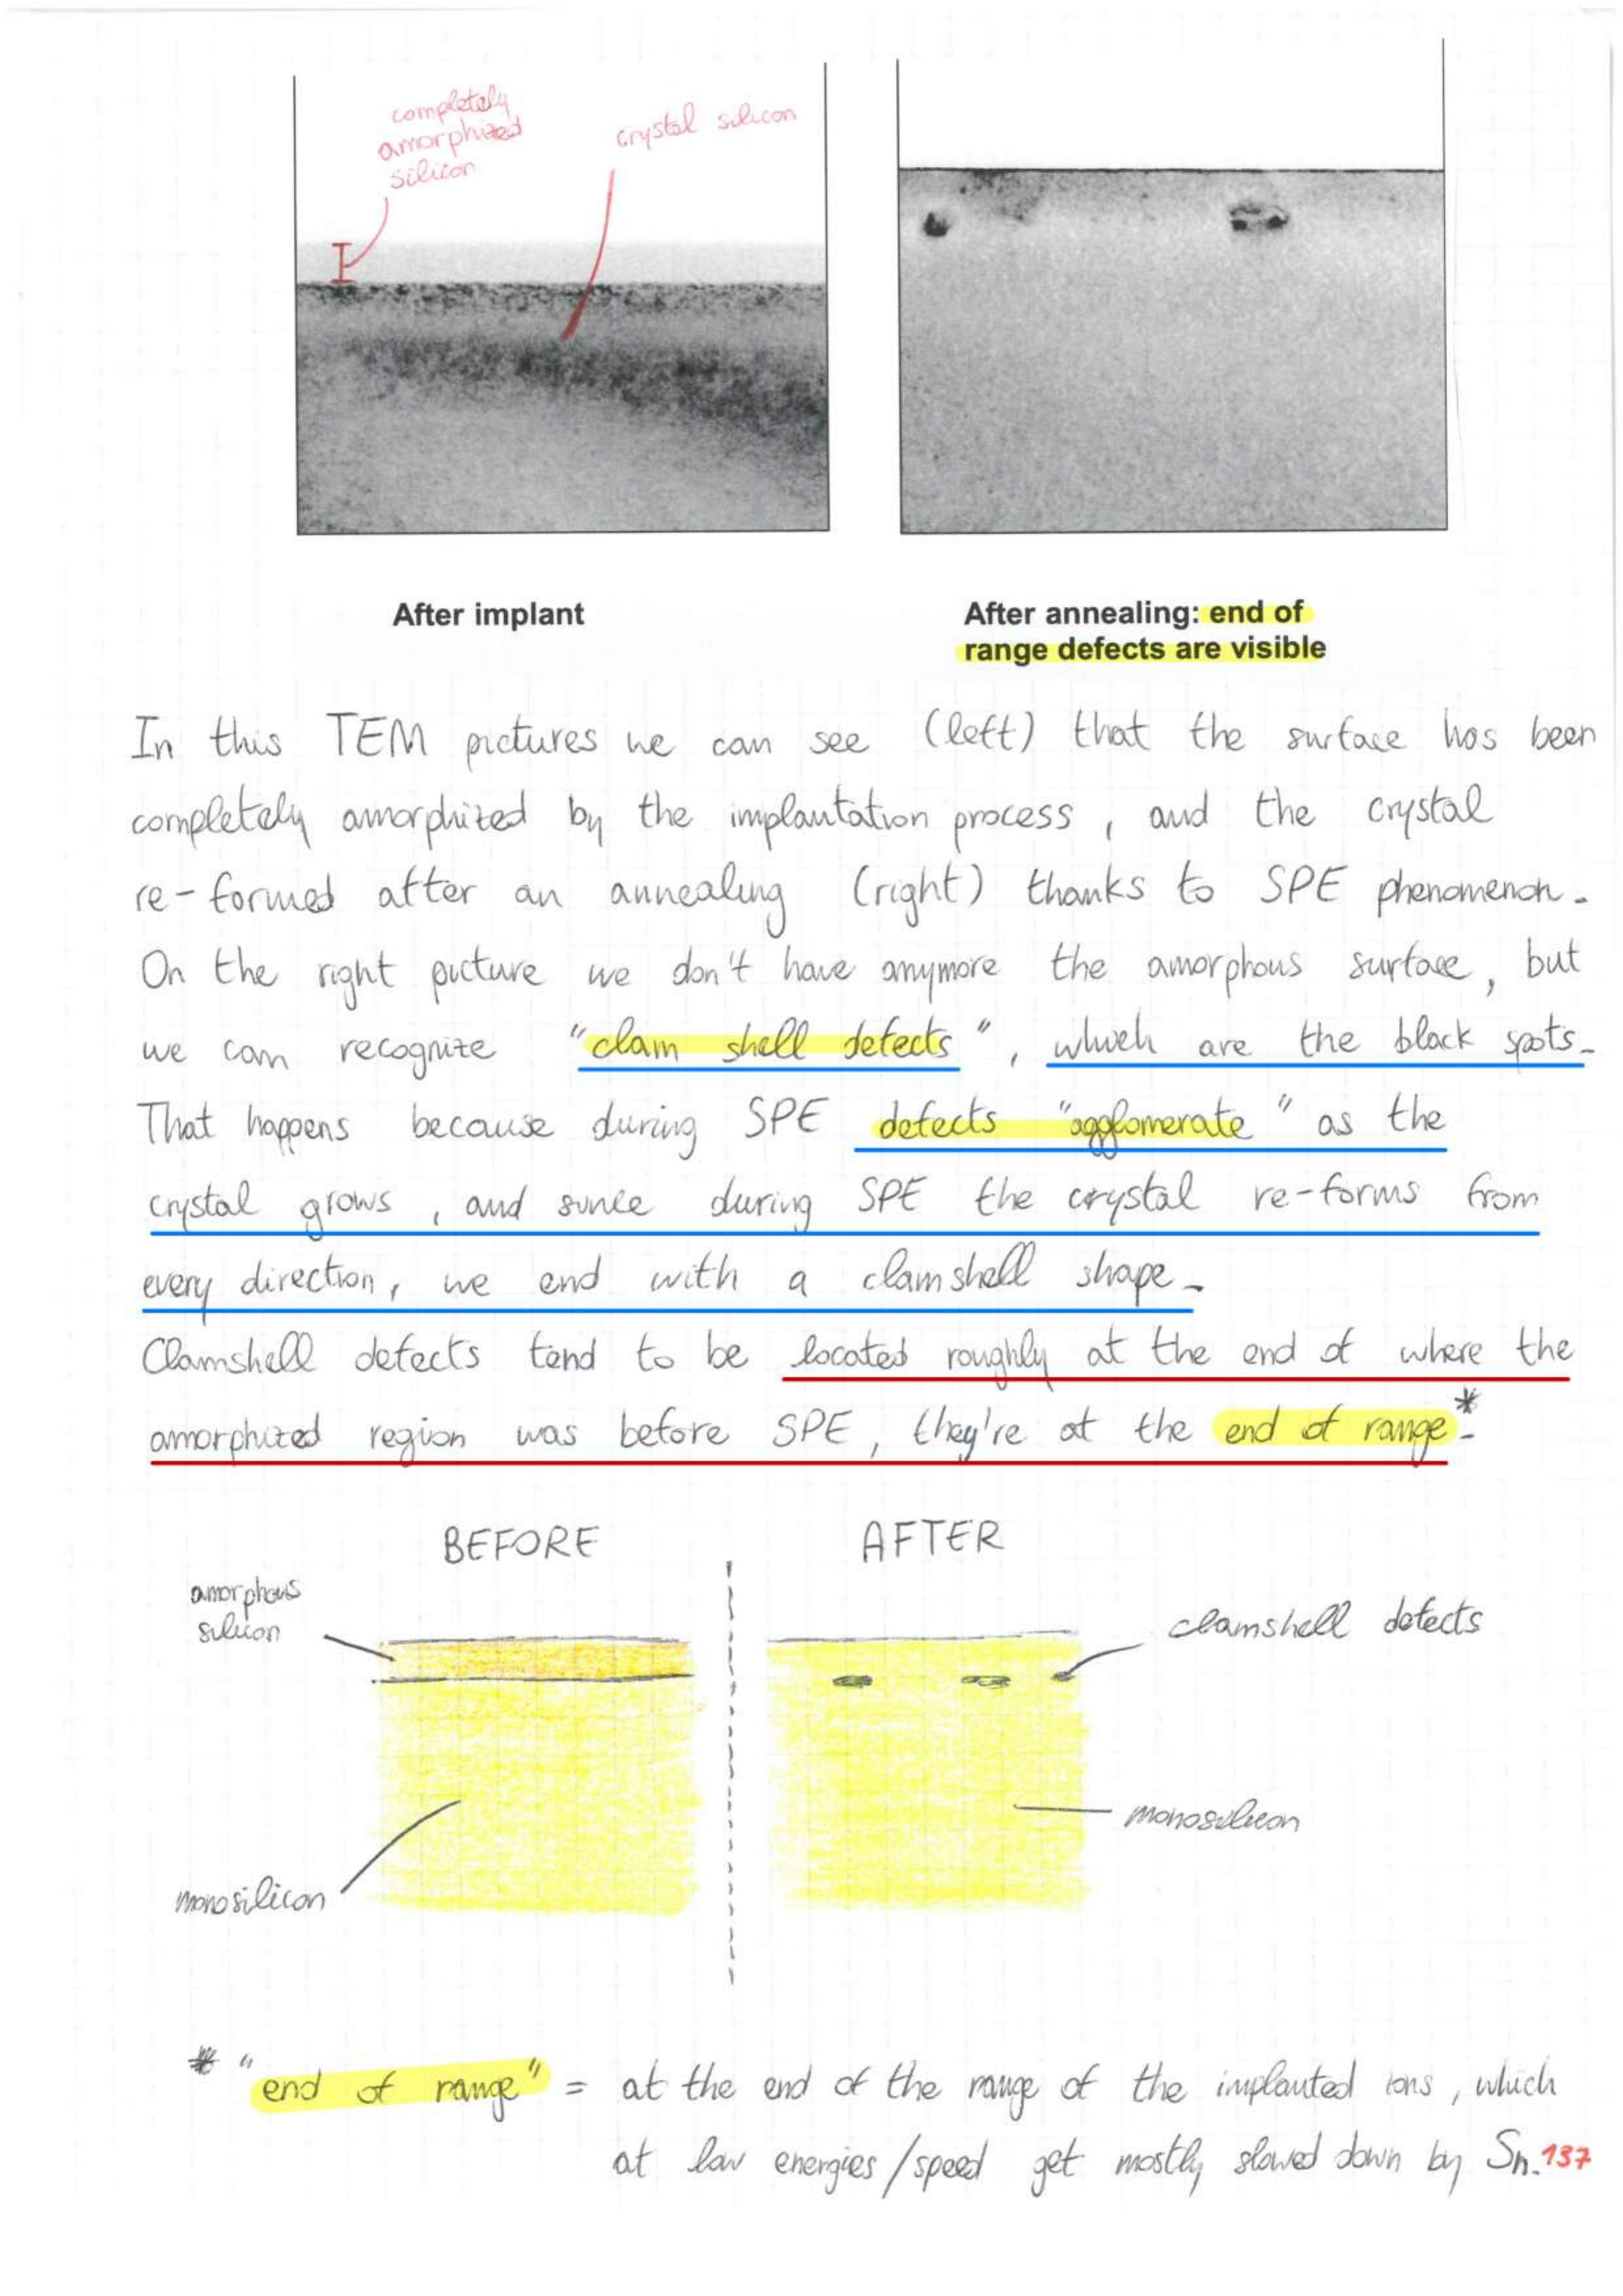 completely
amorphized
silicon
crystal silicon
After implant
After annealing: end of
range defects are visible
In this TEM pictures we can see (left) that the surface has been
completely amorphized by the implantation process, and the crystal
re-formed after an annealing (right) thanks to SPE phenomenon.
On the right picture we don't have anymore the amorphous surface, but
we can recognize "clam shell defects", which are the black spots.
That happens because during SPE defects "agglomerate" as the
crystal grows, and since during SPE the crystal re-forms from
every direction, we end with a clamshell shape.
Clamshell defects tend to be located roughly at the end of where the
amorphized region was before SPE, they're at the end of range.*
BEFORE
AFTER
amorphous
silicon
clamshell defects
monosilicon
monosilicon
* "end of range" = at the end of the range of the implanted ions, which
at low energies/speed get mostly slowed down by Sn.
137